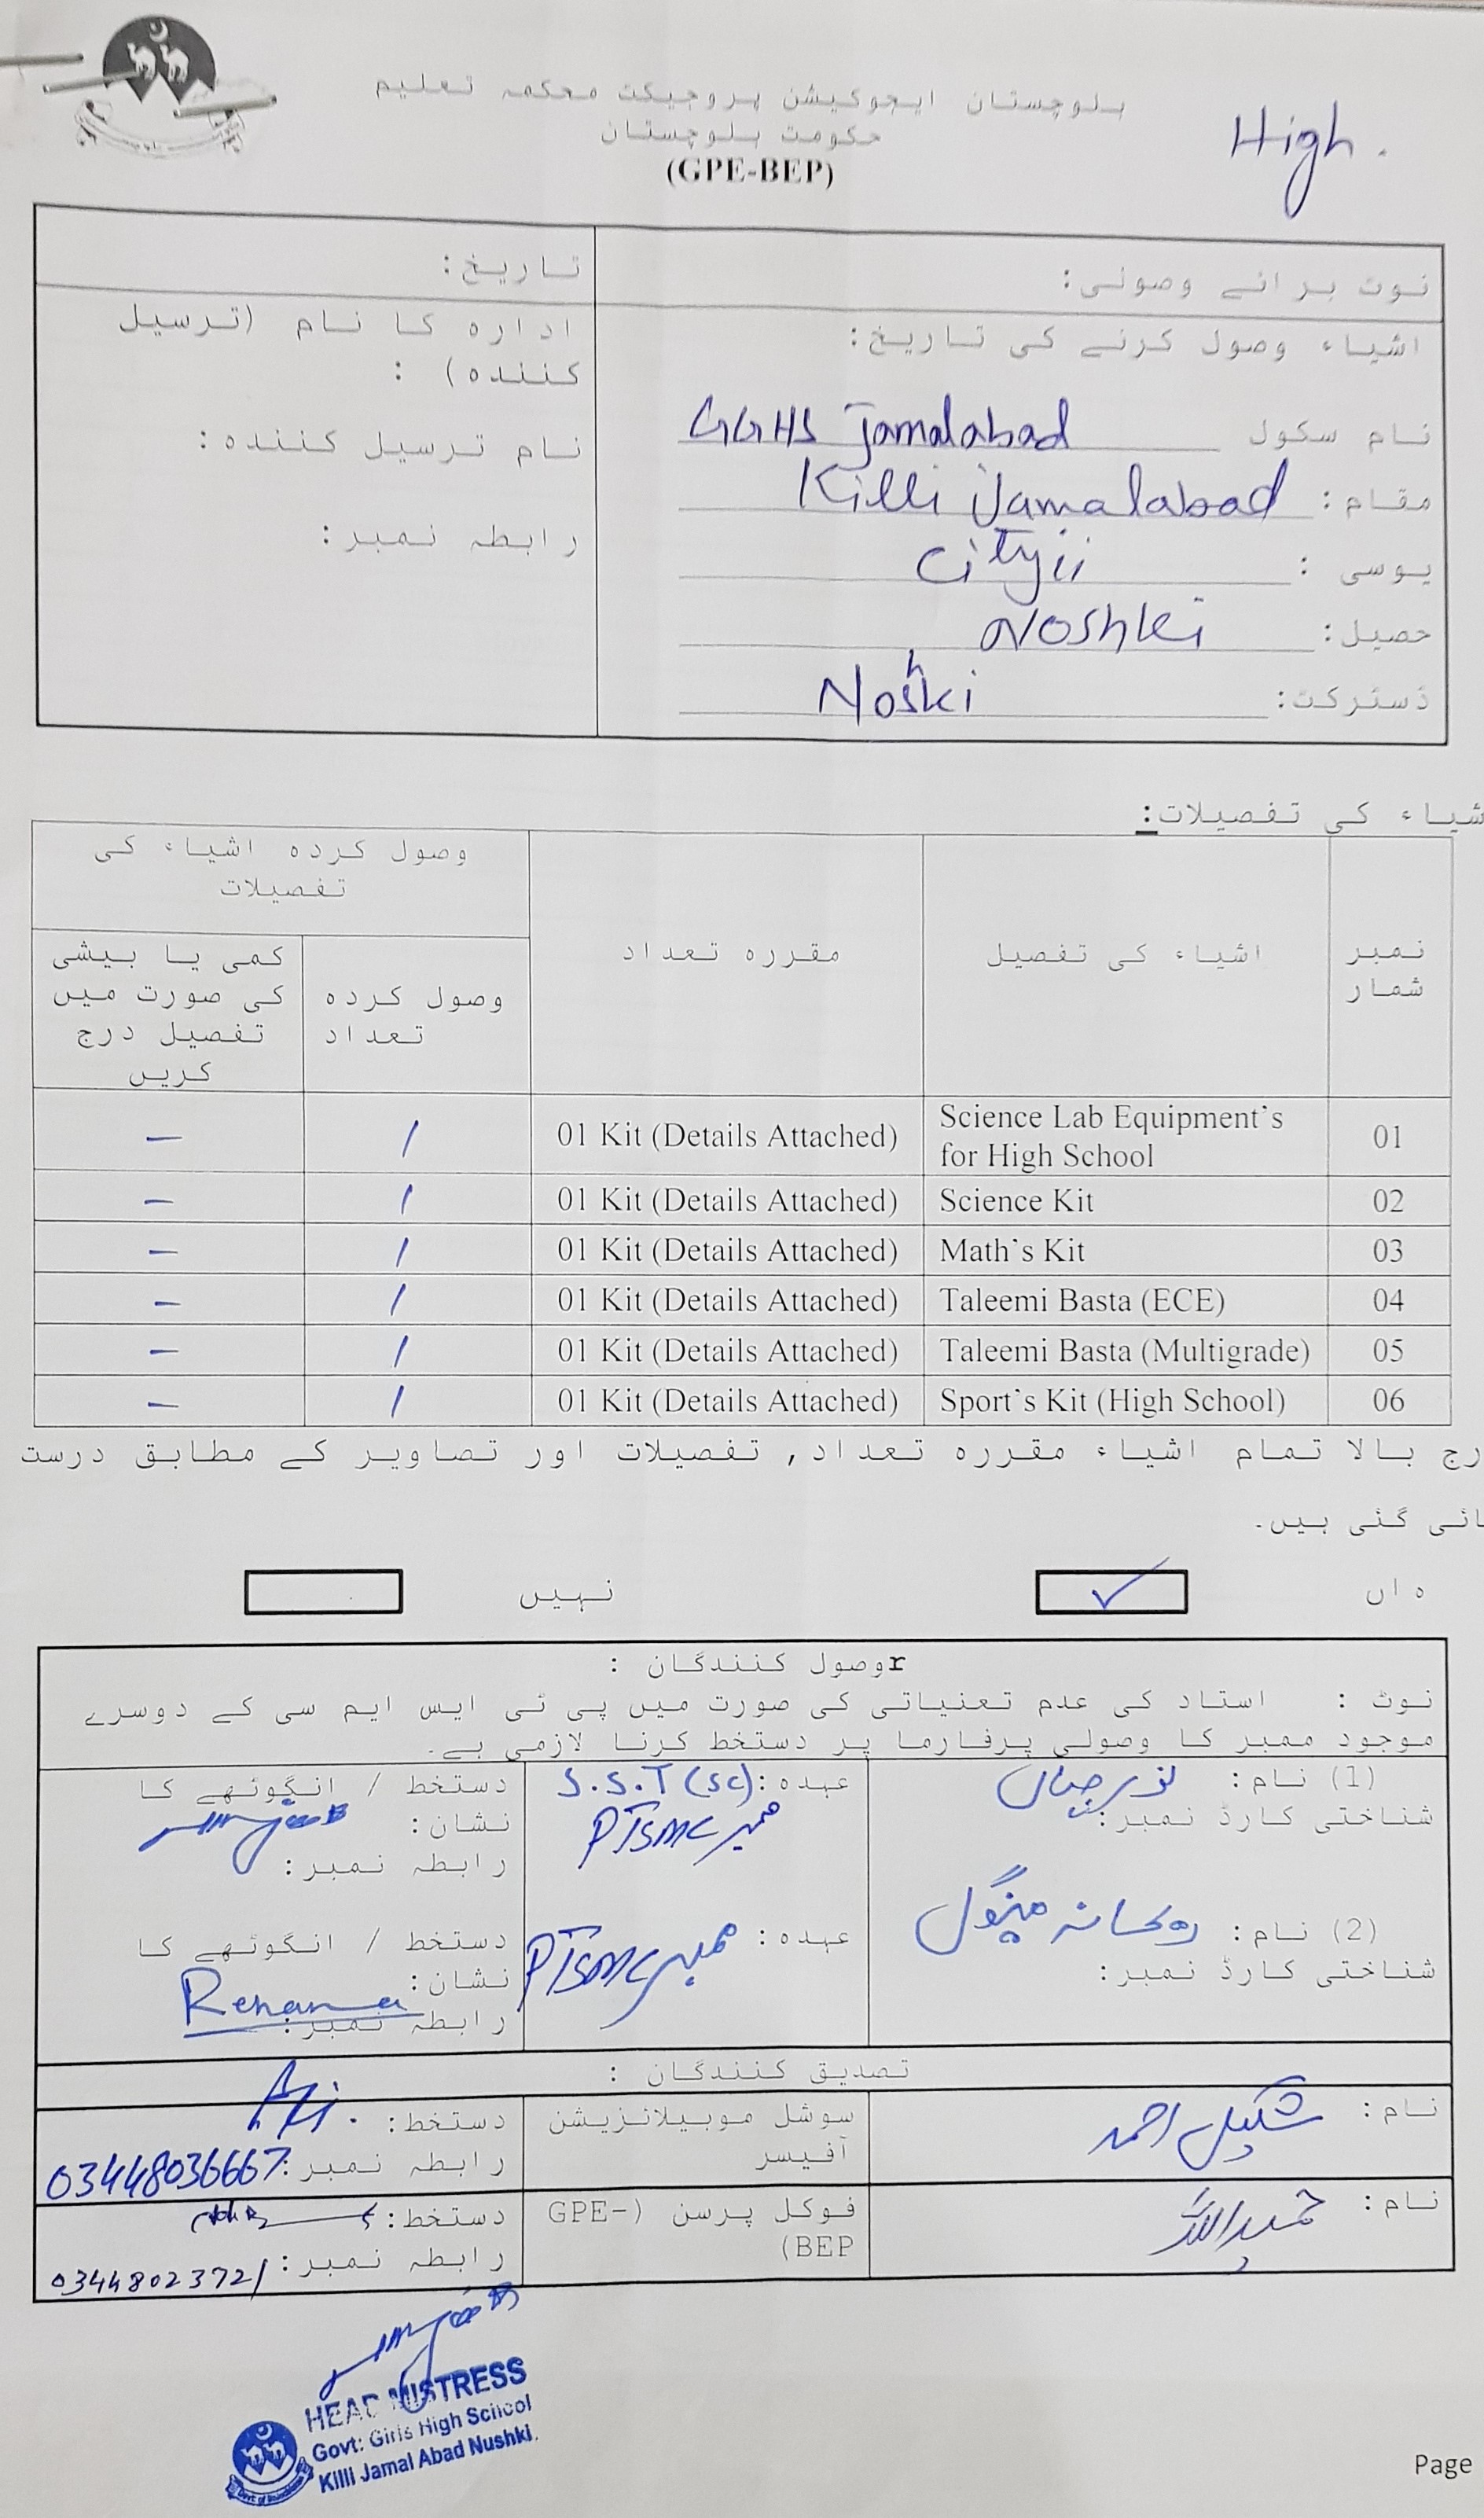 بلوچستان ایجوکیشن پروجیکٹ محکمہ تعلیم
حکومت بلوچستان
(GPE-BEP)
High.
نوٹ برائے وصولی:
تاریخ:
اشیاء وصول کرنے کی تاریخ:
نام سکول GGHS Jamalabad
مقام: Killi Jamalabad
یوسی : City ii
حصیل: Noshki
ڈسٹرکٹ: Noshki
ادارہ کا نام (ترسیل
کنندہ) :
نام ترسیل کنندہ:
رابطہ نمبر:
شیاء کی تفصیلات:
نمبر شمار
اشیاء کی تفصیل
مقررہ تعداد
وصول کردہ اشیاء کی تفصیلات
وصول کردہ تعداد
کمی یا بیشی کی صورت میں تفصیل درج کریں
01 Science Lab Equipment's for High School 01 Kit (Details Attached) 1 –
02 Science Kit 01 Kit (Details Attached) 1 –
03 Math's Kit 01 Kit (Details Attached) 1 –
04 Taleemi Basta (ECE) 01 Kit (Details Attached) 1 –
05 Taleemi Basta (Multigrade) 01 Kit (Details Attached) 1 –
06 Sport's Kit (High School) 01 Kit (Details Attached) 1 –
رج بالا تمام اشیاء مقررہ تعداد, تفصیلات اور تصاویر کے مطابق درست
ائی گئی ہیں۔
ہاں ✓
نہیں
rوصول کنندگان :
نوٹ : استاد کی عدم تعنیاتی کی صورت میں پی ٹی ایس ایم سی کے دوسرے
موجود ممبر کا وصولی پرفارما پر دستخط کرنا لازمی ہے۔
(1) نام: نور جہاں
شناختی کارڈ نمبر:
عہدہ: S.S.T (Sc)
ممبر PTSMC
دستخط / انگوٹھے کا
نشان:
رابطہ نمبر:
(2) نام: ریحانہ مینگل
شناختی کارڈ نمبر:
عہدہ: ممبر PTSMC
دستخط / انگوٹھے کا
نشان: Rehana
رابطہ نمبر:
تصدیق کنندگان :
نام: شکیل احمد
سوشل موبیلائزیشن
آفیسر
دستخط:
رابطہ نمبر: 03448036667
نام: حمید اللہ
فوکل پرسن (GPE-
BEP)
دستخط:
رابطہ نمبر: 03448023721
HEAD MISTRESS
Govt: Girls High School
Killi Jamal Abad Nushki.
Page